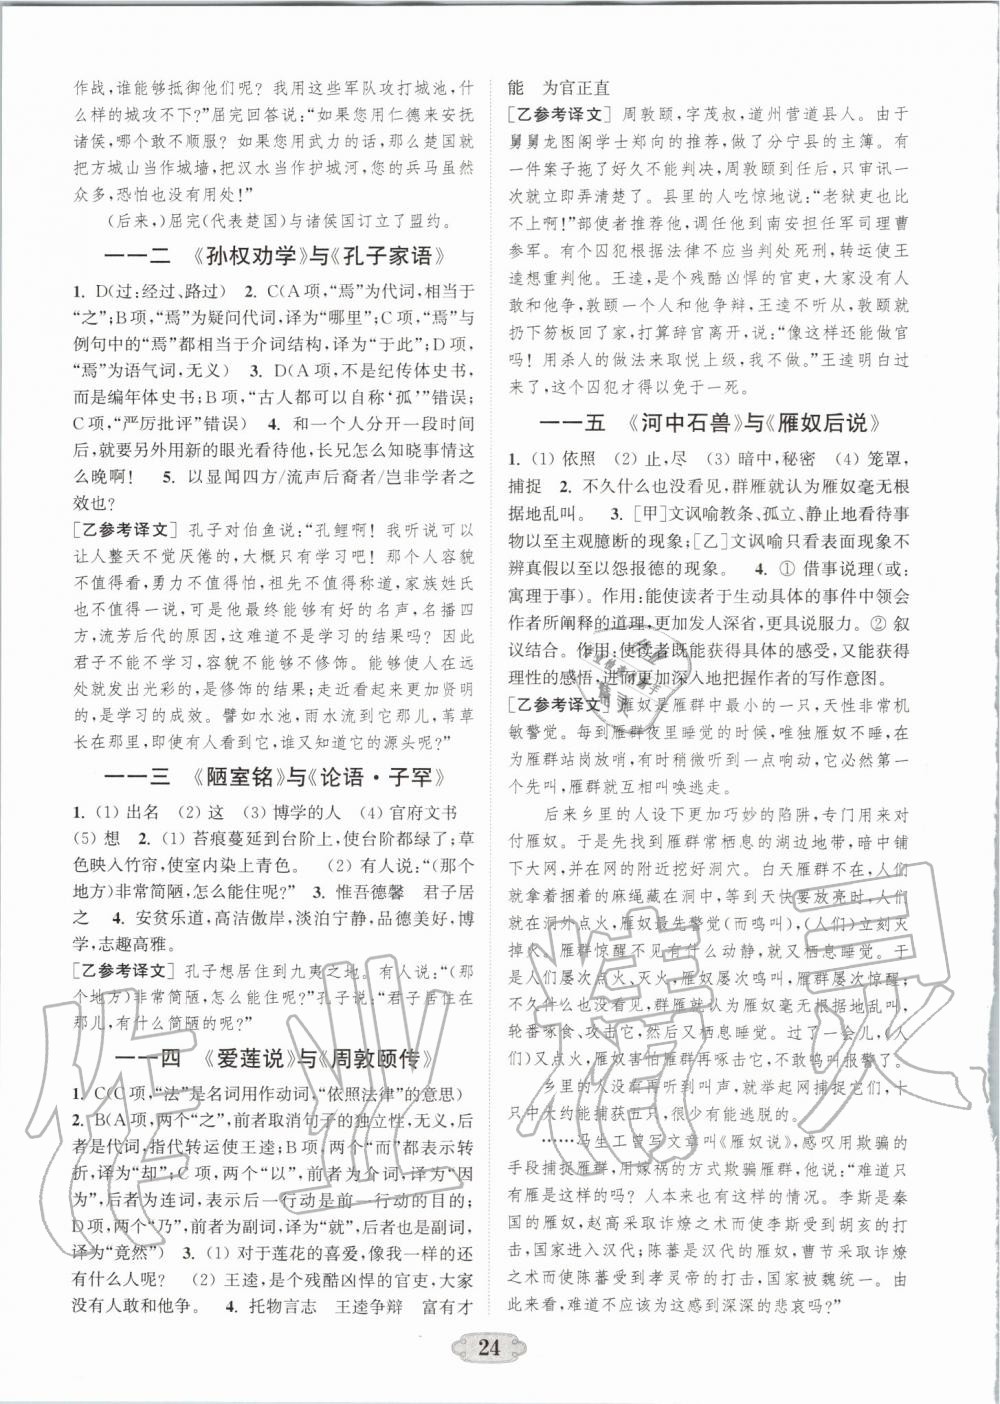 作战,谁能够抵御他们呢? 我用这些军队攻打城池,什
么样的城攻不下?”屈完回答说:“如果您用仁德来安抚
诸侯,哪个敢不顺服? 如果您用武力的话,那么楚国就
把方城山当作城墙,把汉水当作护城河,您的兵马虽然
众多,恐怕也没有用处!”
(后来,)屈完(代表楚国)与诸侯国订立了盟约。
一一二 《孙权劝学》与《孔子家语》
1. D(过:经过、路过) 2. C(A项,“焉”为代词,相当于
“之”;B项,“焉”为疑问代词,译为“哪里”;C项,“焉”与
例句中的“焉”相当于介词结构,译为“于此”;D项,
“焉”为语气词,无义) 3. D(A项,不是纪传体史书,
而是编年体史书;B项,“古人都可以自称‘孤’”错误;
C项,“严厉批评”错误) 4. 和一个人分开一段时间
后,就要另外用新的眼光看待他,长兄怎么知晓事情这
么晚啊! 5. 以显闻四方/流声后裔者/岂非学者之
效也?
[乙参考译文] 孔子对伯鱼说:“孔鲤啊! 我听说可以
让人整天不觉厌倦的,大概只有学习吧! 那个人容貌
不值得看,勇力不值得怕,祖先不值得称道,家族姓氏
也不值得一说,可是他最终能够有好的名声,名播四
方,流芳后代的原因,这难道不是学习的结果吗? 因此
君子不能不学习,容貌不能够不修饰。能够使人在远
处就发出光彩的,是修饰的结果;走近看起来更加贤明
的,是学习的成效。譬如水池,雨水流到它那儿,苇草
长在那里,即使有人看到它,谁又知道它的源头呢?”
一一三 《陋室铭》与《论语·子罕》
1. (1) 出名 (2) 这 (3) 博学的人 (4) 官府文书
(5) 想 2. (1) 苔痕蔓延到台阶上,使台阶都绿了;草
色映入竹帘,使室内染上青色。 (2) 有人说:“(那个
地方)非常简陋,怎么能住呢?” 3. 惟吾德馨 君子居
之 4. 安贫乐道,高洁傲岸,淡泊宁静,品德美好,博
学,志趣高雅。
[乙参考译文] 孔子想居住到九夷之地。有人说:“(那
个地方)非常简陋,怎么能住呢?”孔子说:“君子居住在
那儿,有什么简陋的呢?”
一一四 《爱莲说》与《周敦颐传》
1. C(C项,“法”是名词用作动词,“依照法律”的意思)
2. B(A项,两个“之”,前者取消句子的独立性,无义,后
者是代词,指代转运使王逵;B项,两个“而”,都表示转
折,译为“却”;C项,两个“以”,前者为介词,译为“因
为”,后者为连词,表示后一行动是前一行动的目的;
D项,两个“乃”,前者为副词,译为“就”,后者也是副词,
译为“竟然”) 3. (1) 对于莲花的喜爱,像我一样的还
有什么人呢? (2) 王逵,是个残酷凶悍的官吏,大家
没有人敢和他争。 4. 托物言志 王逵争辩 富有才
能 为官正直
[乙参考译文] 周敦颐,字茂叔,道州营道县人。由于
舅舅龙图阁学士郑向的推荐,做了分宁县的主簿。有
一件案子拖了好久不能判决,周敦颐到任后,只审讯一
次就立即弄清楚了。县里的人吃惊地说:“老狱吏也比
不上啊!”部使者推荐他,调任他到南安担任军司理曹
参军。有个囚犯根据法律不应当判处死刑,转运使王
逵想重判他。王逵,是个残酷凶悍的官吏,大家没有人
敢和他争,敦颐一个人和他争辩,王逵不听从,敦颐就
扔下笏板回了家,打算辞官离开,说:“像这样还能做官
吗! 用杀人的做法来取悦上级,我不做。”王逵明白过
来,这个囚犯才得以免于一死。
一一五 《河中石兽》与《雁奴后说》
1. (1) 依照 (2) 止,尽 (3) 暗中,秘密 (4) 笼罩,
捕捉 2. 不久什么也没看见,群雁就认为雁奴毫无根
据地乱叫。 3. [甲]文讽喻教条、孤立、静止地看待事
物以至主观臆断的现象;[乙]文讽喻只看表面现象不
辨真假以至以怨报德的现象。 4. ① 借事说理(或:
寓理于事)。作用:能使读者于生动具体的事件中领会
作者所阐释的道理,更加发人深省,更具说服力。② 叙
议结合。作用:使读者既能获得具体的感受,又能获得
理性的感悟,进而更加深入地把握作者的写作意图。
[乙参考译文] 雁奴是雁群中最小的一只,天性非常机
敏警觉。每到雁群夜里睡觉的时候,唯独雁奴不睡,在
在雁群站岗放哨,有时稍微听到一点动静,必定
一个先叫,雁群就互相叫唤逃走。
后来乡里的人设下更加巧妙的陷阱,专门用来对
付雁奴。于是先找到雁群常栖息的湖边地带,暗中铺
下大网,并在网的附近挖好洞穴。白天雁群在,人们
就拿着捆着的麻绳藏在洞中,等到天快要放亮时,就
在洞外点火,雁奴最先警觉(而鸣叫),(人们)立刻灭
掉火。雁群惊醒不见有什么动静,就又栖息睡觉。于
是人们屡次点火,灭火,雁奴屡次鸣叫,雁群屡次惊醒,
也没看见什么,群雁就认为雁奴毫无根据地乱叫,
轮番啄食、攻击它,然后又栖息睡觉。过了一会儿,(人
们)又点火,雁奴害怕雁群再啄击它,不敢鸣叫了。
乡里的人听不到叫声,就举起网捕捉它们,十只
中大约能捕捉到五只,很少有能逃脱的。
……冯生工曾写文章叫《雁奴说》,感叹用欺骗的
手段捕捉雁群,用嫁祸的方式欺骗雁群,他说:“难道只
有雁是这样的吗? 人本来也有这样的情况。李斯是秦
国的雁奴,赵高采取诈燎之术而使李斯受到胡亥的打
击,国家进入汉代;陈蕃是汉代的雁奴,曹节采取诈燎
之术而使陈蕃受到孝灵帝的打击,国家被魏统一。由
此来看,难道不应该为此感到深深的悲哀吗?”
24
作业精灵